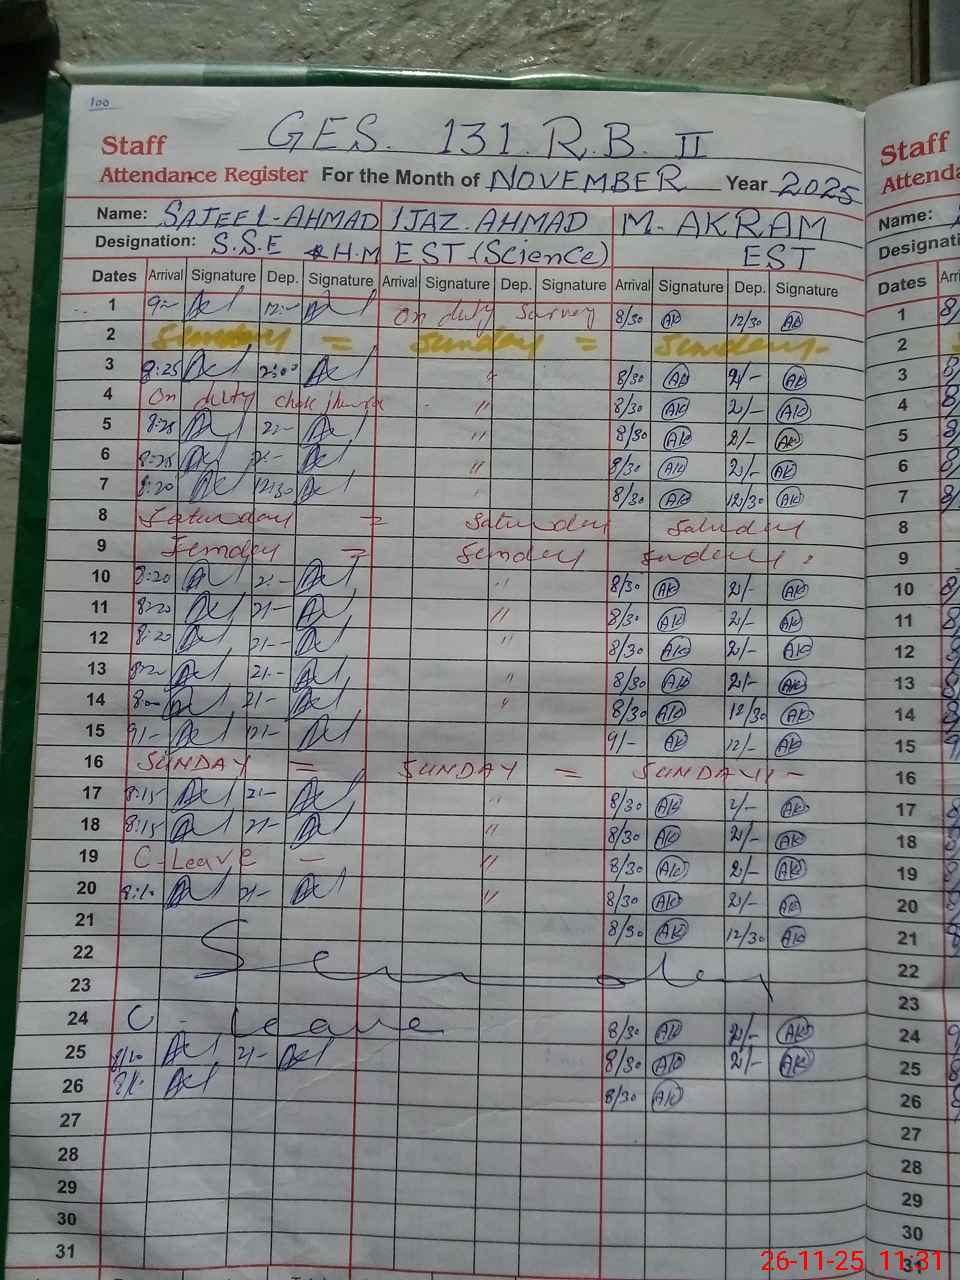 100
GES. 131. R.B. II
Staff
Attendance Register For the Month of NOVEMBER Year 2025
Name: AHMAD IJAZ. AHMAD M. AKRAM
Designation: S.S.E & H.M EST (Science) EST
Dates Arrival Signature Dep. Signature Arrival Signature Dep. Signature Arrival Signature Dep. Signature
1 9- 12- On duty Survey 8/30 AK 12/30 AK
2 Sunday = Sunday = Sunday -
3 8:25 2:00 " 8/30 AK 2/- AK
4 On duty " 8/30 AK 2/- AK
5 8:20 2:- " 8/30 AK 2/- AK
6 8:25 2:- " 8/30 AK 2/- AK
7 8:20 12:30 " 8/30 AK 12/30 AK
8 Saturday = Saturday Saturday
9 Sunday = Sunday Sunday
10 8:20 2:- " 8/30 AK 2/- AK
11 8:20 2/- " 8/30 AK 2/- AK
12 8:20 2/- " 8/30 AK 2/- AK
13 8:20 2/- " 8/30 AK 2/- AK
14 8:00 2/- " 8/30 AK 12/30 AK
15 9/- 12/- 9/- AK 12/- AK
16 SUNDAY = SUNDAY = SUNDAY -
17 8:15 2/- " 8/30 AK 2/- AK
18 8:15 2/- " 8/30 AK 2/- AK
19 C-Leave - " 8/30 AK 2/- AK
20 8:10 2/- " 8/30 AK 2/- AK
21 8/30 AK 12/30 AK
22 Sunday
23
24 C - Leave 8/30 AK 2/- AK
25 8/20 2/- 8/30 AK 2/- AK
26 8/30 AK
27
28
29
30
31
Staff
Attenda
Name:
Designati
Dates
1
2
3
4
5
6
7
8
9
10
11
12
13
14
15
16
17
18
19
20
21
22
23
24
25
26
27
28
29
30
31
26-11-25 11:31